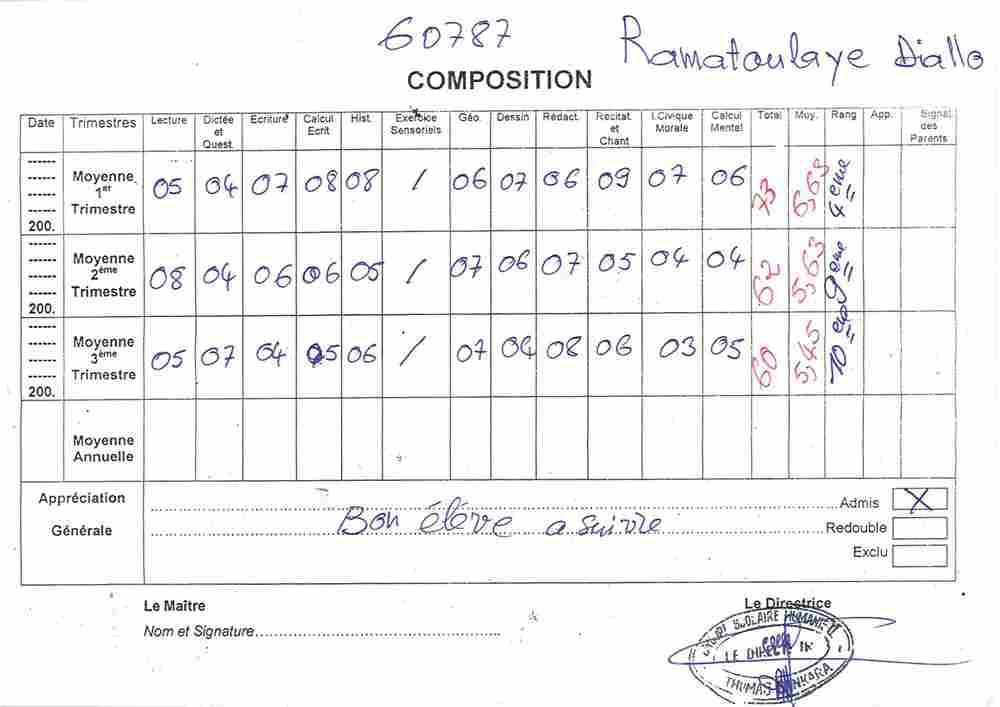 60787
Ramatoulaye Diallo
COMPOSITION
Date Trimestres Lecture Dictée et Quest. Ecriture Calcul Ecrit Hist. Exercice Sensoriels Géo. Dessin Rédact. Récitat. et Chant I.Civique Morale Calcul Mentel Total Moy. Rang App. Signal. des Parents
------ ------ ------ ------ 200. Moyenne 1er Trimestre 05 04 07 08 08 / 06 07 06 09 07 06 73 6,63 4ème
------ ------ ------ ------ 200. Moyenne 2ème Trimestre 08 04 06 06 05 / 07 06 07 05 04 04 62 5,63 9ème
------ ------ ------ ------ 200. Moyenne 3ème Trimestre 05 07 04 05 06 / 07 04 08 06 03 05 60 5,45 10ème
Moyenne Annuelle
Appréciation Générale
Bon élève a suivre
Admis X
Redouble
Exclu
Le Maître
Nom et Signature
Le Directrice
SCOLAIRE
LE DIREC